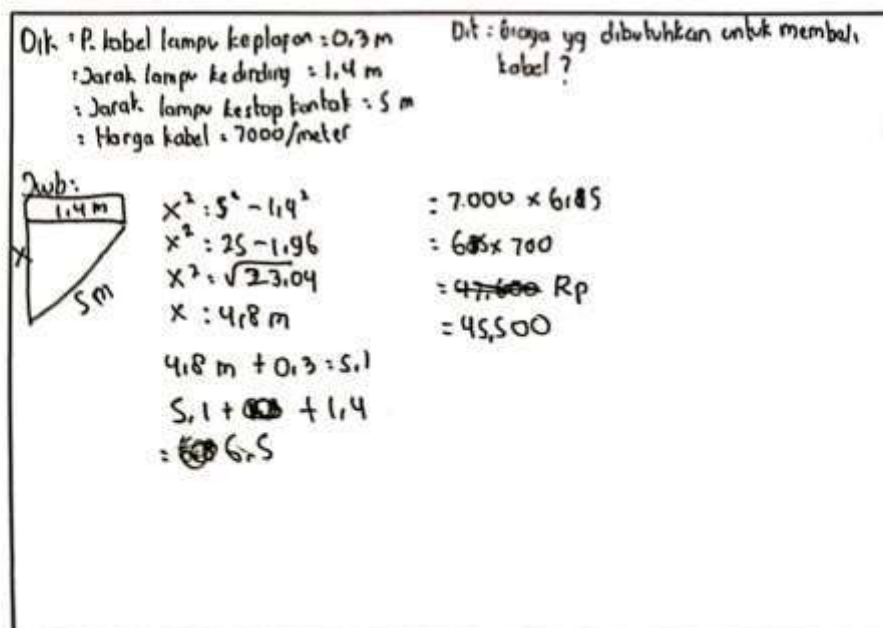 Dik : P. kabel lampu keplapon : 0,3 m
: Jarak lampu ke dinding : 1,4 m
: Jarak lampu kestop kontak : 5 m
: Harga kabel : 7000/meter
Dit : biaya yg dibutuhkan untuk membeli
kabel ?
Jwb:
1,4 m
x
5 m
x² : 5² - 1,4²
x² : 25 - 1,96
x² : √23,04
x : 4,8 m
4,8 m + 0,3 : 5,1
5,1 + + 1,4
: 6,5
: 7.000 x 6,5
: 65 x 700
: 47.600 Rp
= 45,500